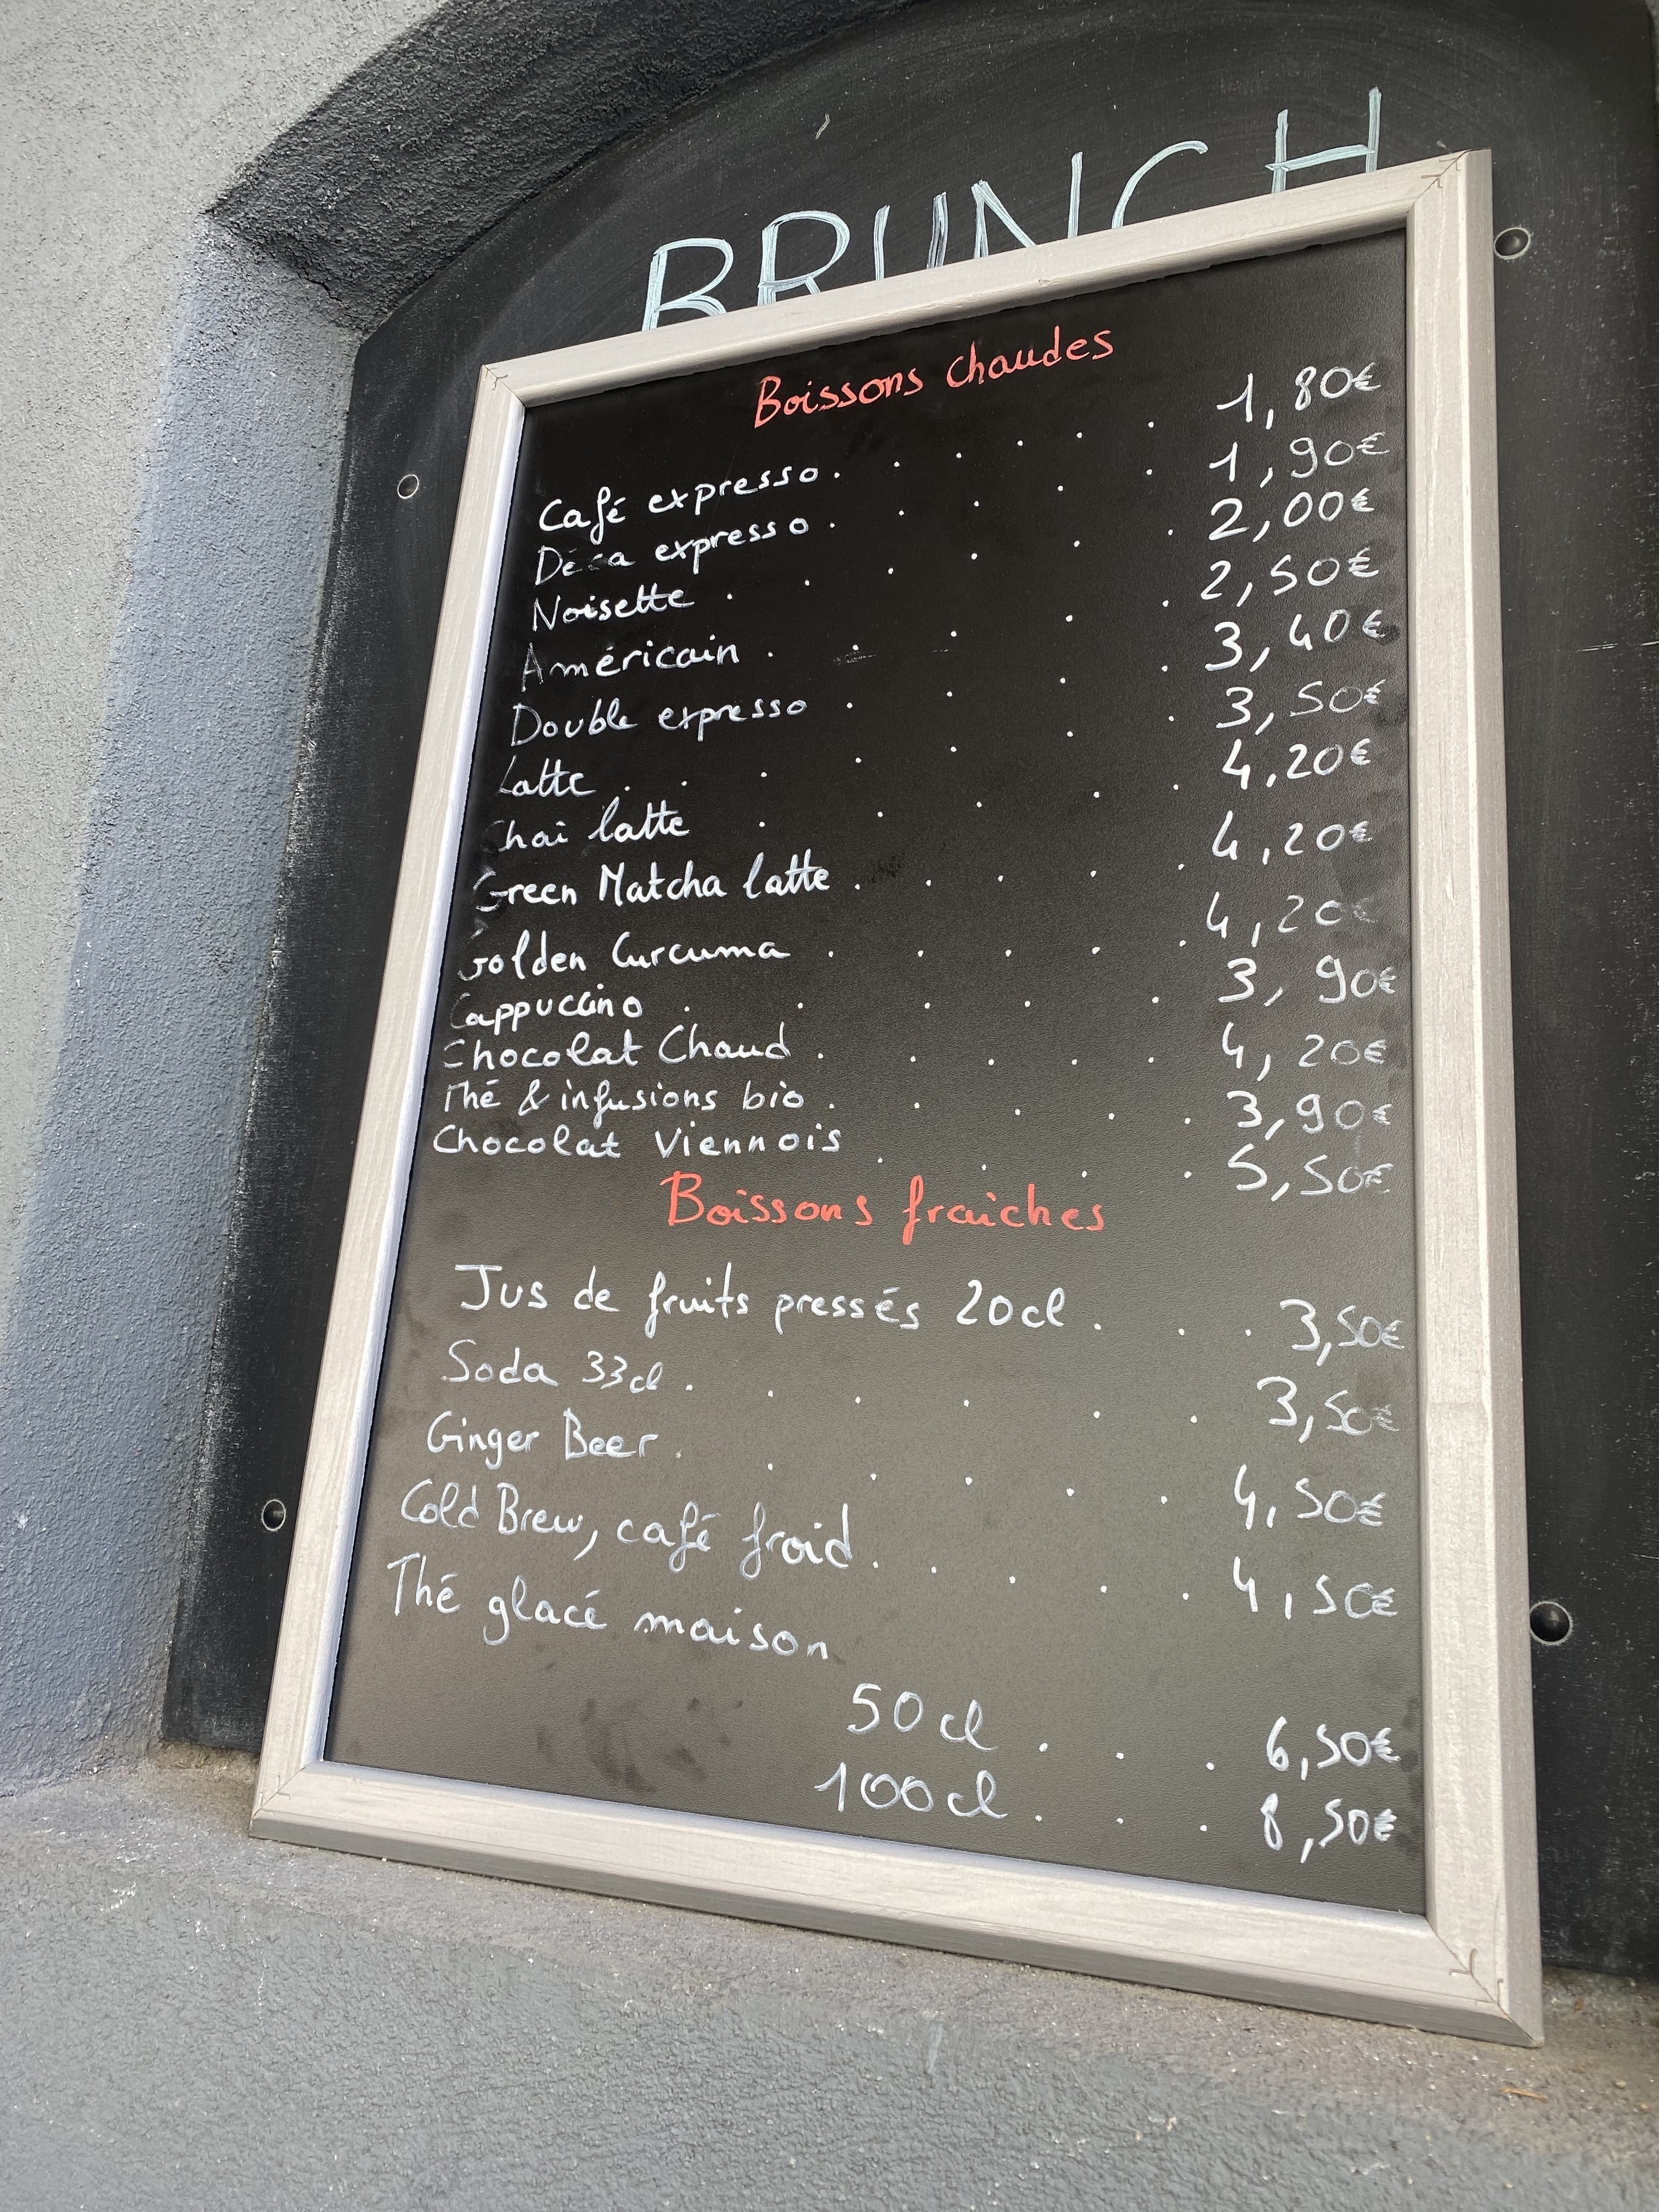 BRUNCH
Boissons chaudes
Café expresso . . . . . . 1,80€
Déca expresso . . . . . 1,90€
Noisette . . . . . . 2,00€
Américain . . . . . 2,50€
Double expresso . . . . 3,40€
Latte . . . . . . . 3,50€
Chai latte . . . . . 4,20€
Green Matcha latte . . . . . 4,20€
Golden Curcuma . . . . . 4,20€
Cappuccino . . . . . 3,90€
Chocolat Chaud . . . . . 4,20€
Thé & infusions bio . . . . . 3,90€
Chocolat Viennois . . . . 5,50€
Boissons fraiches
Jus de fruits pressés 20cl . . . 3,50€
Soda 33cl . . . . . . 3,50€
Ginger Beer . . . . . . 4,50€
Cold Brew, café froid . . . . . 4,50€
Thé glacé maison
50cl . . . 6,50€
100cl . . . 8,50€